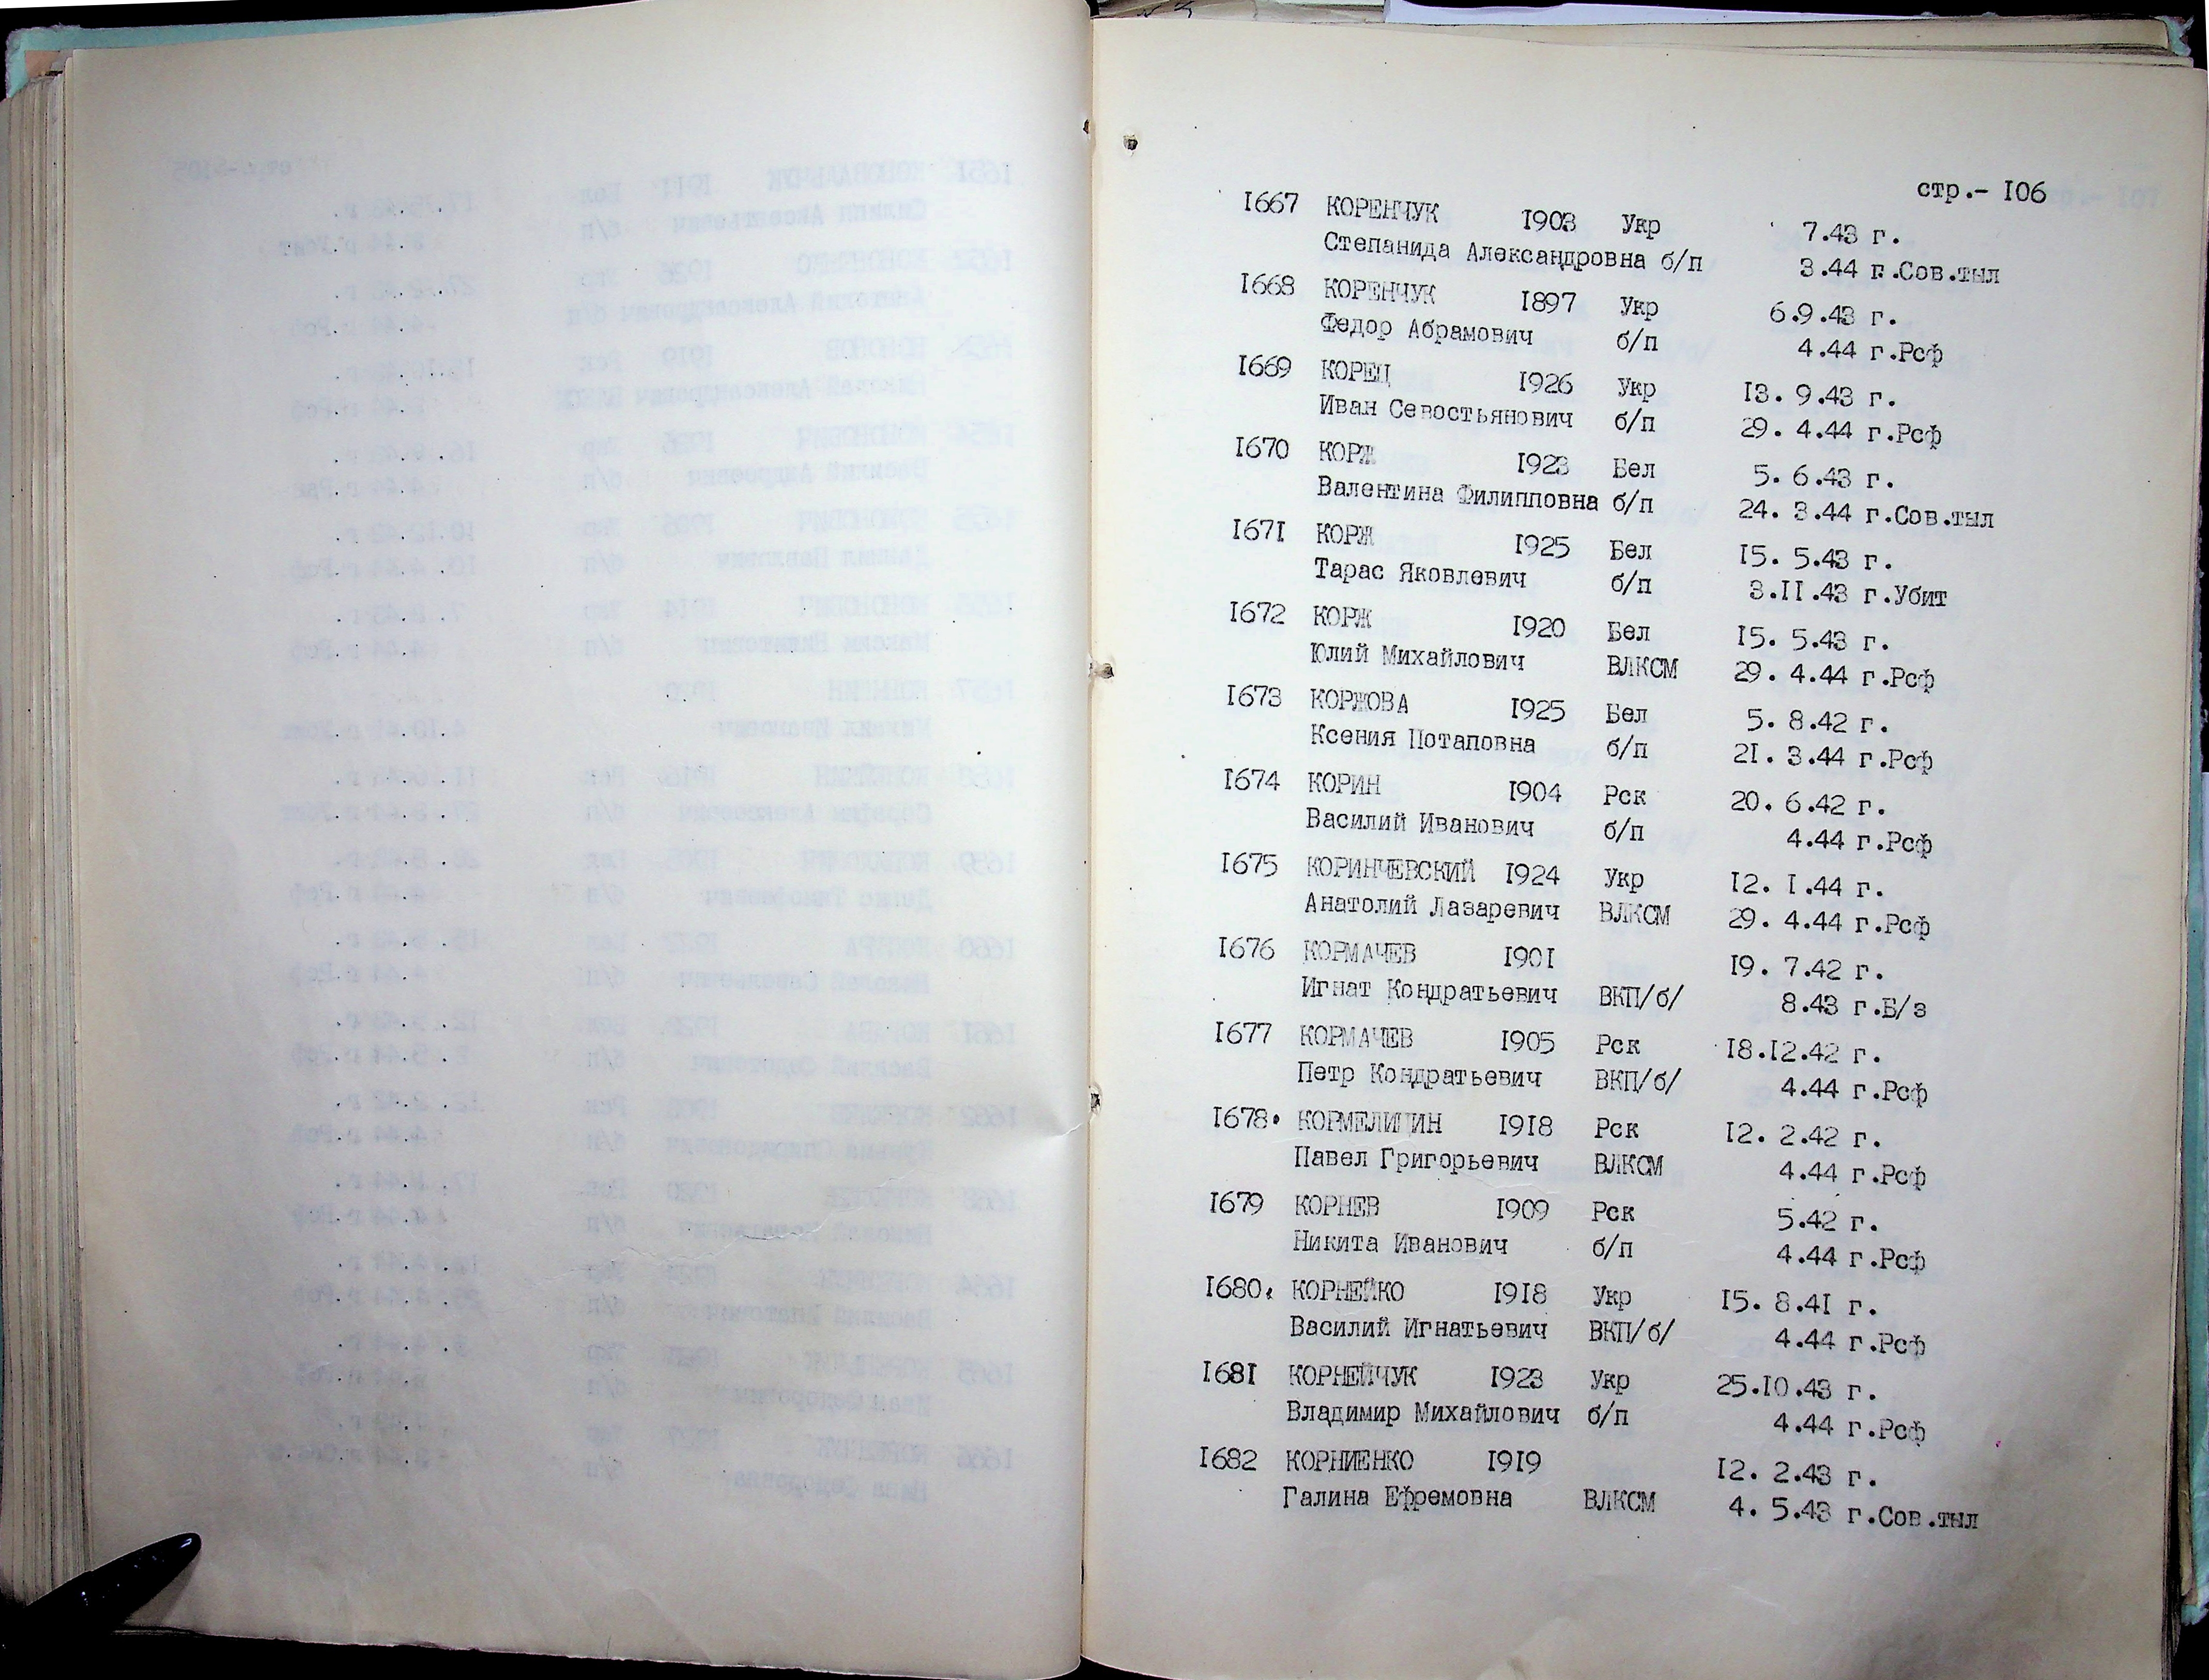 стр.- 106
1667 КОРЕНЧУК 1903 Укр 7.43 г.
Степанида Александровна б/п 3.44 г.Сов.тыл
1668 КОРЕНЧУК 1897 Укр 6.9.43 г.
Федор Абрамович б/п 4.44 г.Рсф
1669 КОРЕЦ 1926 Укр 13. 9.43 г.
Иван Севостьянович б/п 29. 4.44 г.Рсф
1670 КОРЖ 1923 Бел 5. 6.43 г.
Валентина Филипповна б/п 24. 3.44 г.Сов.тыл
1671 КОРЖ 1925 Бел 15. 5.43 г.
Тарас Яковлевич б/п 3.11.43 г.Убит
1672 КОРЖ 1920 Бел 15. 5.43 г.
Юлий Михайлович ВЛКСМ 29. 4.44 г.Рсф
1673 КОРЖОВА 1925 Бел 5. 8.42 г.
Ксения Потаповна б/п 21. 3.44 г.Рсф
1674 КОРИН 1904 Рск 20. 6.42 г.
Василий Иванович б/п 4.44 г.Рсф
1675 КОРИНЧЕВСКИЙ 1924 Укр 12. 1.44 г.
Анатолий Лазаревич ВЛКСМ 29. 4.44 г.Рсф
1676 КОРМАЧЕВ 1901 19. 7.42 г.
Игнат Кондратьевич ВКП/б/ 8.43 г.Б/з
1677 КОРМАЧЕВ 1905 Рск 18.12.42 г.
Петр Кондратьевич ВКП/б/ 4.44 г.Рсф
1678. КОРМЕЛИЦИН 1918 Рск 12. 2.42 г.
Павел Григорьевич ВЛКСМ 4.44 г.Рсф
1679 КОРНЕВ 1909 Рск 5.42 г.
Никита Иванович б/п 4.44 г.Рсф
1680. КОРНЕЙКО 1918 Укр 15. 8.41 г.
Василий Игнатьевич ВКП/б/ 4.44 г.Рсф
1681 КОРНЕЙЧУК 1923 Укр 25.10.43 г.
Владимир Михайлович б/п 4.44 г.Рсф
1682 КОРНИЕНКО 1919 12. 2.43 г.
Галина Ефремовна ВЛКСМ 4. 5.43 г.Сов.тыл